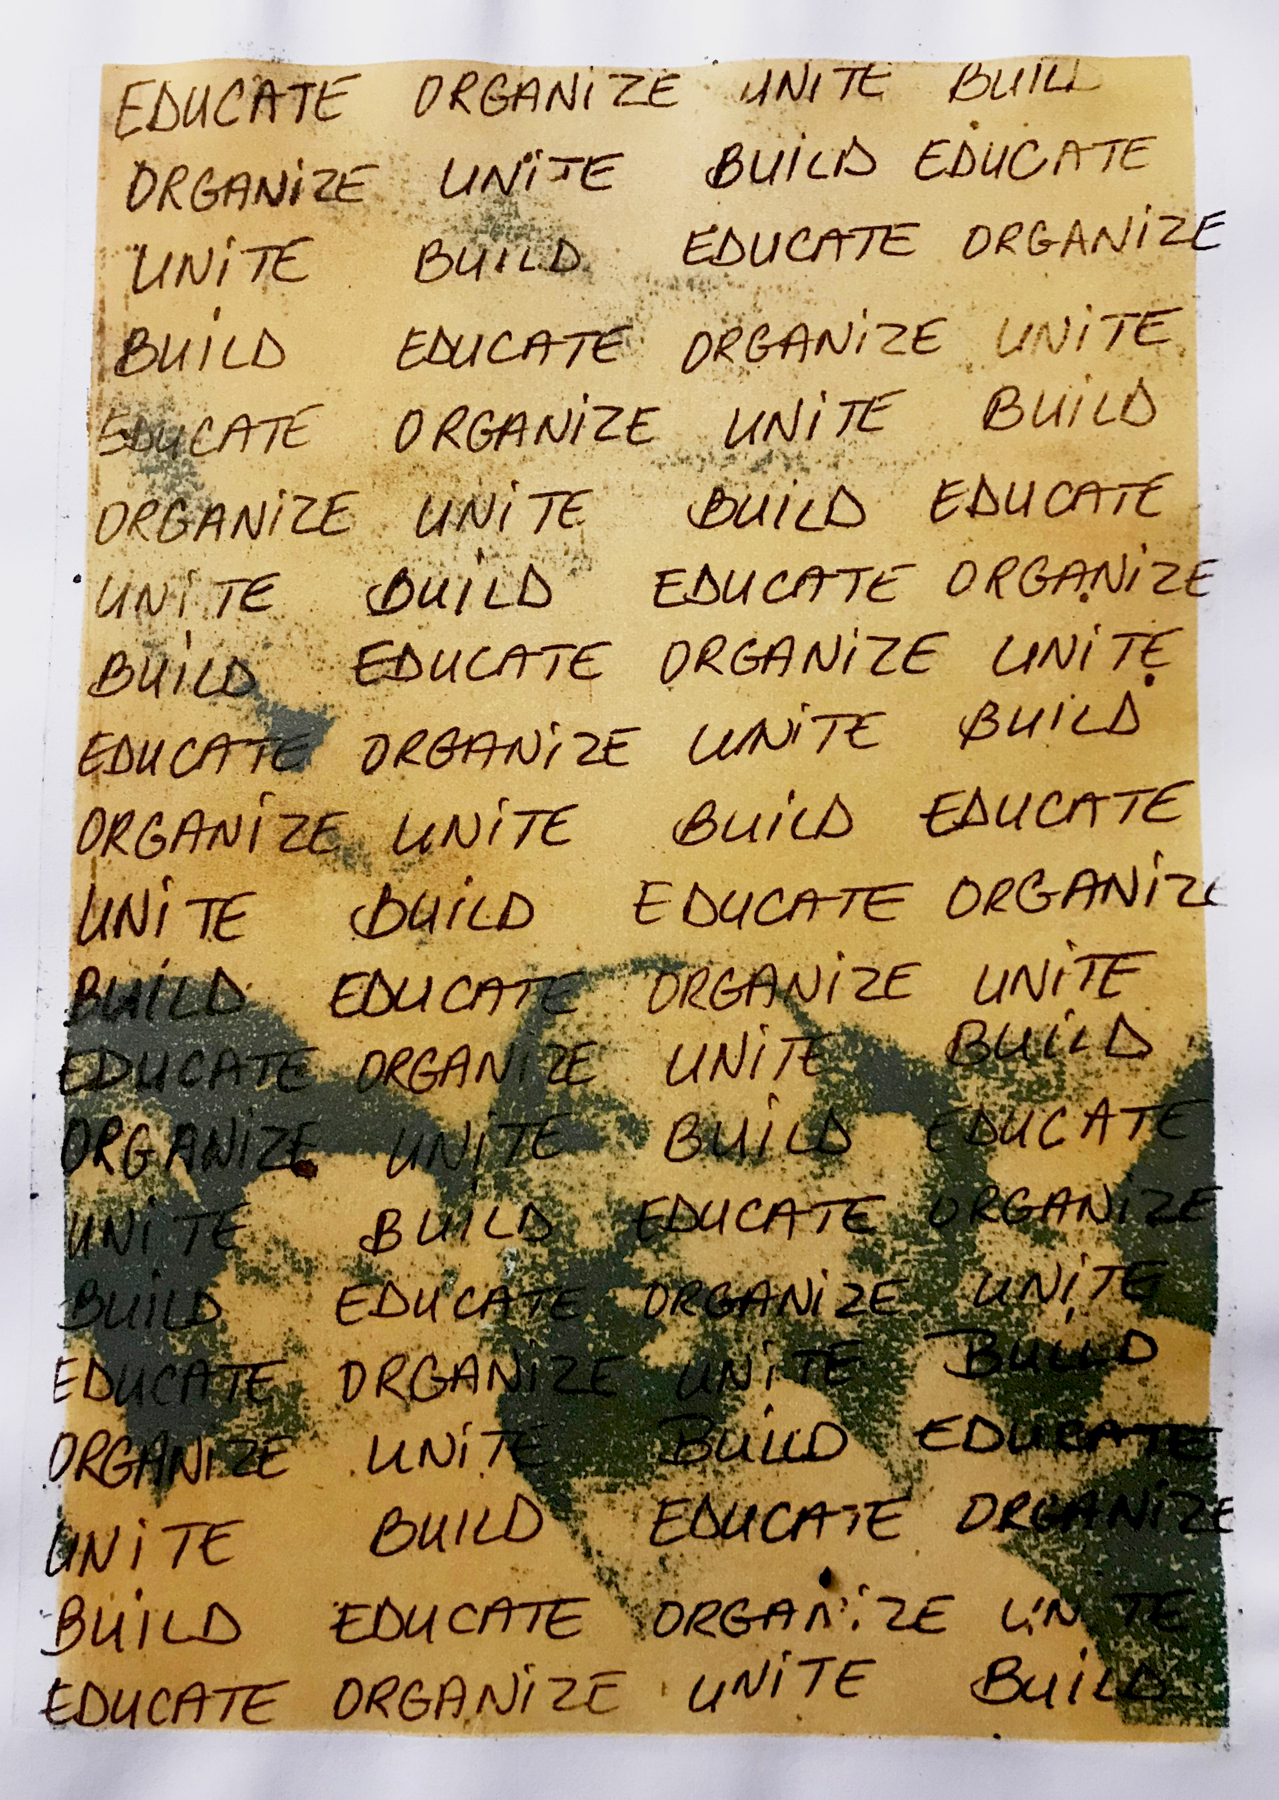 EDUCATE ORGANiZE UNiTE BUiLD
ORGANiZE UNiTE BUiLD EDUCATE
UNiTE BUiLD EDUCATE ORGANiZE
BUiLD EDUCATE ORGANiZE UNiTE
EDUCATE ORGANiZE UNiTE BUiLD
ORGANiZE UNiTE BUiLD EDUCATE
UNiTE BUiLD EDUCATE ORGANiZE
BUiLD EDUCATE ORGANiZE UNiTE
EDUCATE ORGANiZE UNiTE BUiLD
ORGANiZE UNiTE BUiLD EDUCATE
UNiTE BUiLD EDUCATE ORGANiZE
BUiLD EDUCATE ORGANiZE UNiTE
EDUCATE ORGANiZE UNiTE BUiLD
ORGANiZE UNiTE BUiLD EDUCATE
UNiTE BUiLD EDUCATE ORGANiZE
BUiLD EDUCATE ORGANiZE UNiTE
EDUCATE ORGANiZE UNiTE BUiLD
ORGANiZE UNiTE BUiLD EDUCATE
UNiTE BUiLD EDUCATE ORGANiZE
BUiLD EDUCATE ORGANiZE UNiTE
EDUCATE ORGANiZE UNiTE BUiLD